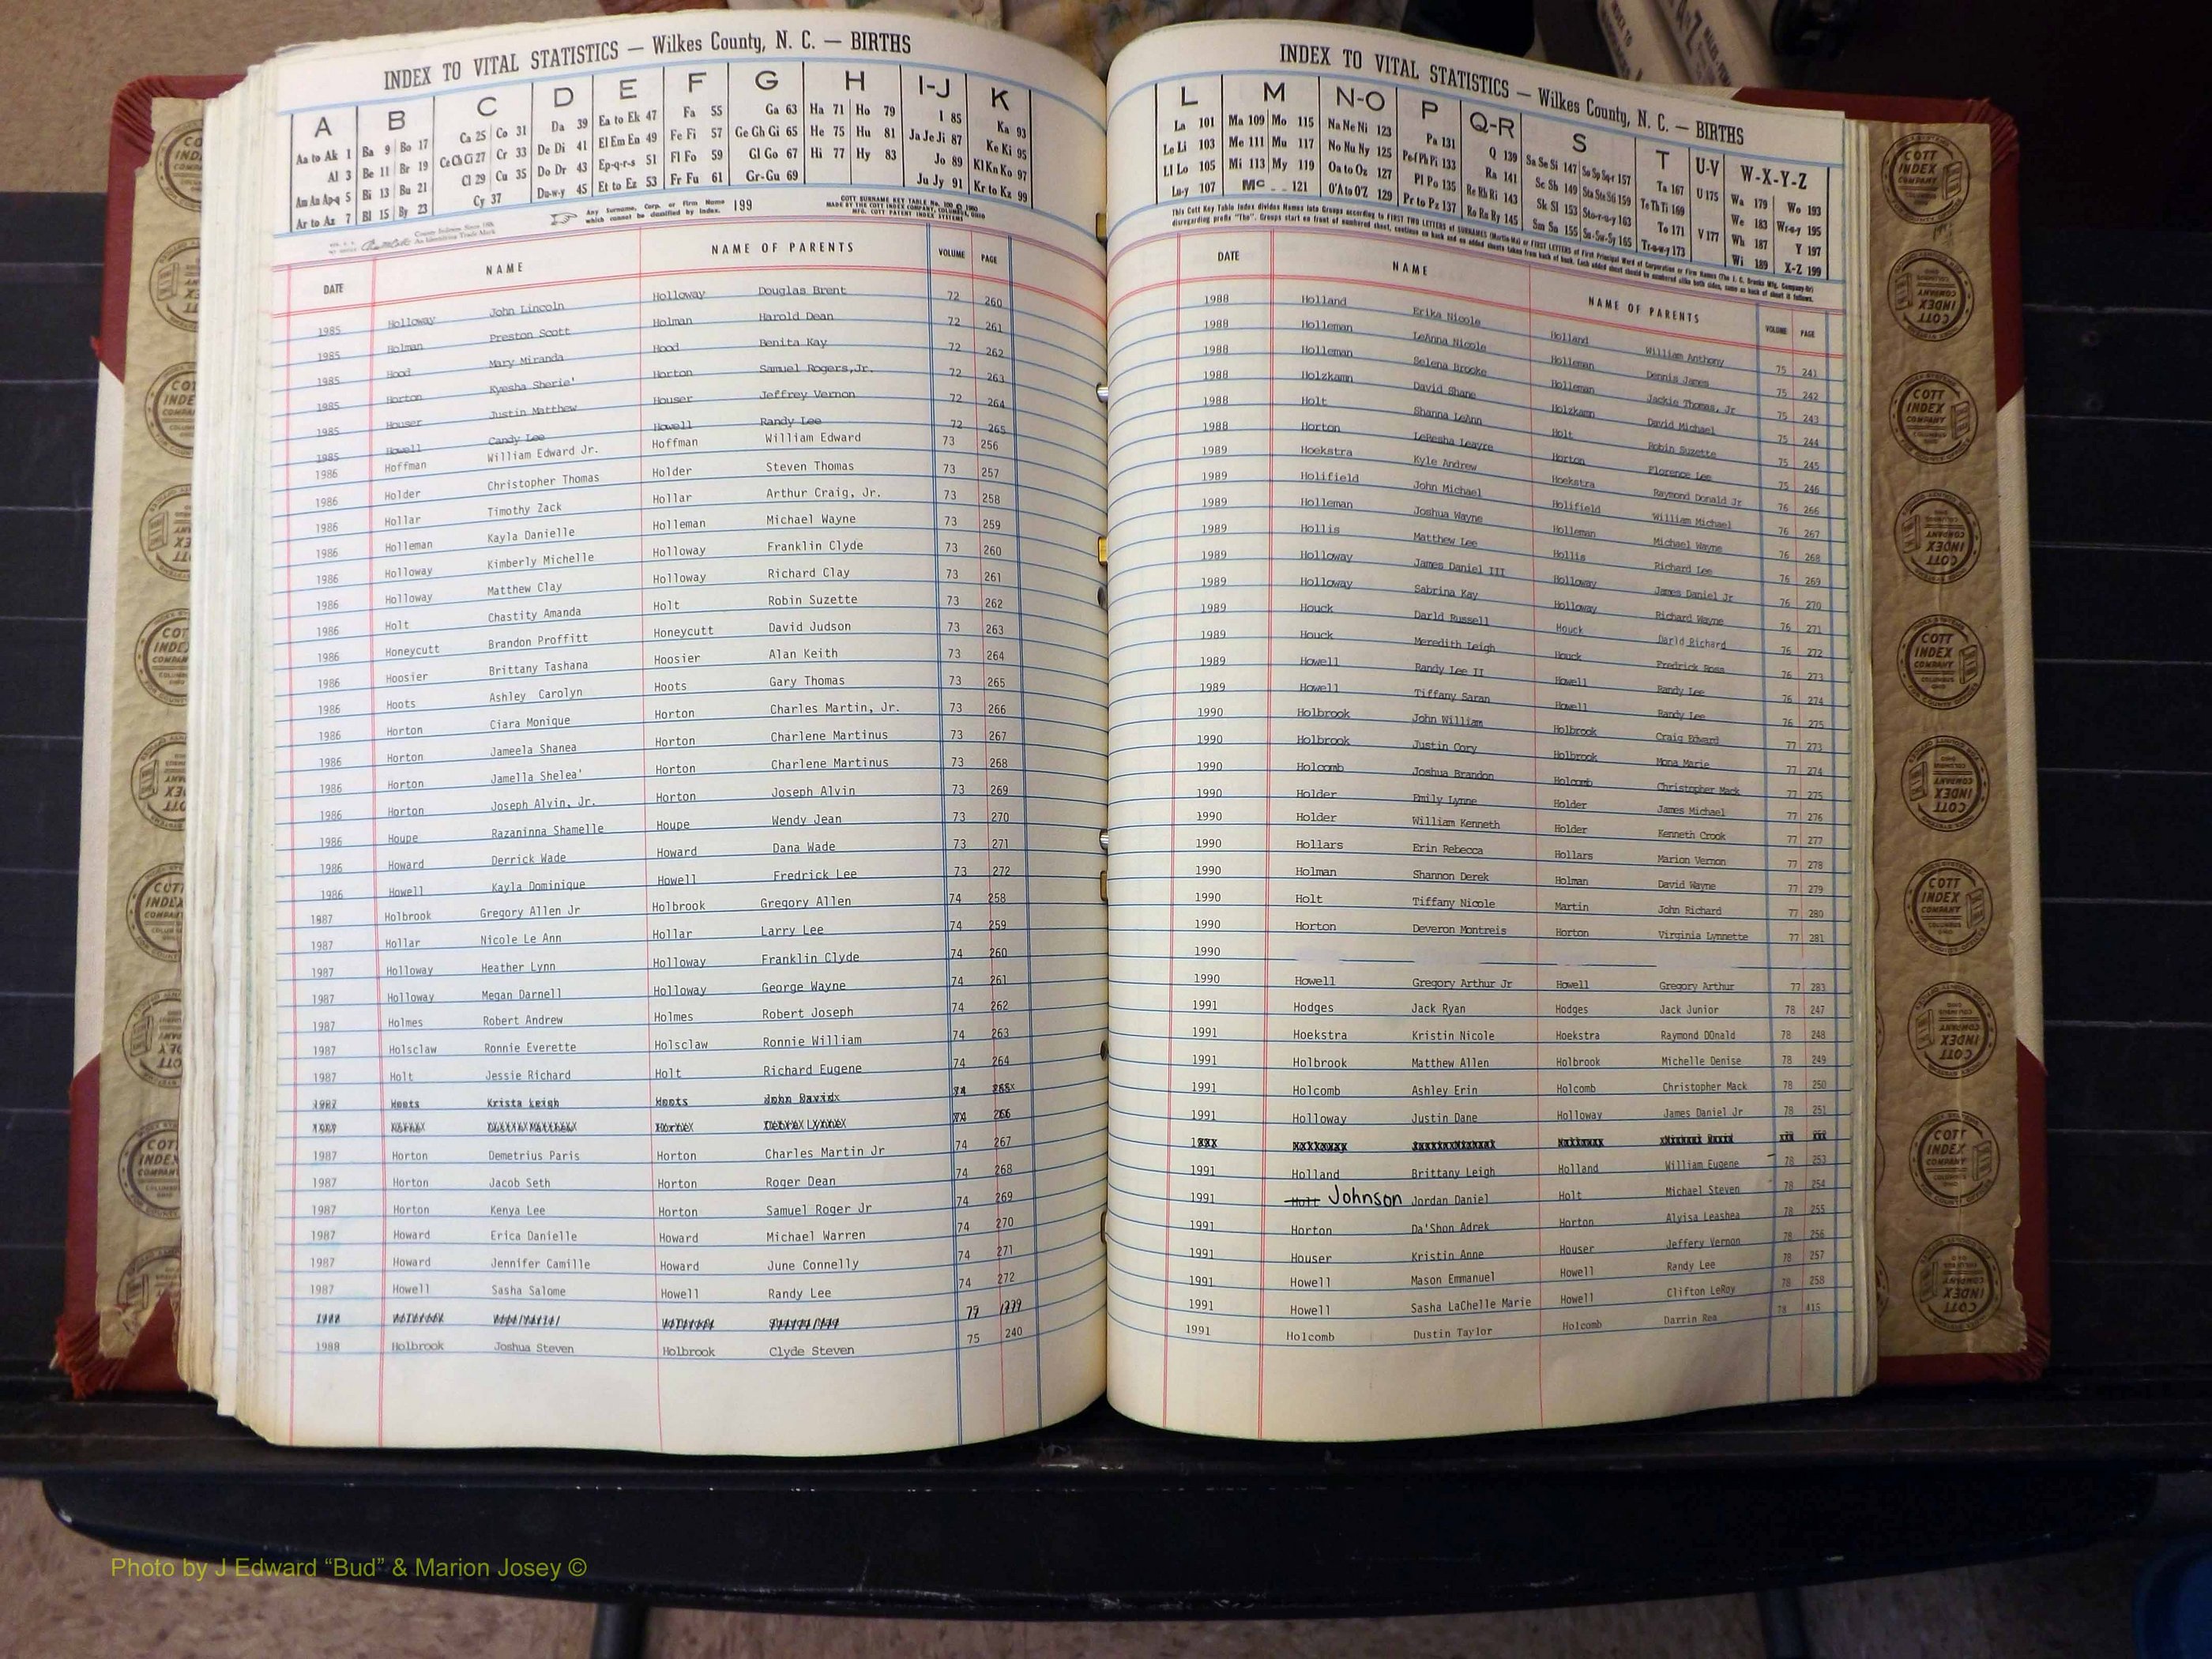 INDEX TO VITAL STATISTICS — Wilkes County, N. C. — BIRTHS
A B C D E F G H I-J K
Aa to Ak 1 Ba 9 Bo 17 Ca 25 Co 31 Da 39 Ea to Ek 47 Fa 55 Ga 63 Ha 71 Ho 79 I 85 Ka 93
Al 3 Be 11 Br 19 Ce Ch Ci 27 Cr 33 De Di 41 El Em En 49 Fe Fi 57 Ge Gh Gi 65 He 75 Hu 81 Ja Je Ji 87 Ke Ki 95
Am An Ap-q 5 Bi 13 Bu 21 Cl 29 Cu 35 Do Dr 43 Ep-q-r-s 51 Fl Fo 59 Gl Go 67 Hi 77 Hy 83 Jo 89 Kl Kn Ko 97
Ar to Az 7 Bl 15 By 23 Cy 37 Du-w-y 45 Et to Ez 53 Fr Fu 61 Gr-Gu 69 Ju Jy 91 Kr to Kz 99
Any Surname, Corp. or Firm Name which cannot be classified by index. 199
DATE NAME NAME OF PARENTS VOLUME PAGE
1985 Holloway John Lincoln Holloway Douglas Brent 72 260
1985 Holman Preston Scott Holman Harold Dean 72 261
1985 Hood Mary Miranda Hood Benita Kay 72 262
1985 Horton Kyesha Sherie' Horton Samuel Rogers,Jr. 72 263
1985 Houser Justin Matthew Houser Jeffrey Vernon 72 264
1985 Howell Candy Lee Howell Randy Lee 72 265
1986 Hoffman William Edward Jr. Hoffman William Edward 73 256
1986 Holder Christopher Thomas Holder Steven Thomas 73 257
1986 Hollar Timothy Zack Hollar Arthur Craig, Jr. 73 258
1986 Holleman Kayla Danielle Holleman Michael Wayne 73 259
1986 Holloway Kimberly Michelle Holloway Franklin Clyde 73 260
1986 Holloway Matthew Clay Holloway Richard Clay 73 261
1986 Holt Chastity Amanda Holt Robin Suzette 73 262
1986 Honeycutt Brandon Proffitt Honeycutt David Judson 73 263
1986 Hoosier Brittany Tashana Hoosier Alan Keith 73 264
1986 Hoots Ashley Carolyn Hoots Gary Thomas 73 265
1986 Horton Ciara Monique Horton Charles Martin, Jr. 73 266
1986 Horton Jameela Shanea Horton Charlene Martinus 73 267
1986 Horton Jamella Shelea' Horton Charlene Martinus 73 268
1986 Horton Joseph Alvin, Jr. Horton Joseph Alvin 73 269
1986 Houpe Razaninna Shamelle Houpe Wendy Jean 73 270
1986 Howard Derrick Wade Howard Dana Wade 73 271
1986 Howell Kayla Dominique Howell Fredrick Lee 73 272
1987 Holbrook Gregory Allen Jr Holbrook Gregory Allen 74 258
1987 Hollar Nicole Le Ann Hollar Larry Lee 74 259
1987 Holloway Heather Lynn Holloway Franklin Clyde 74 260
1987 Holloway Megan Darnell Holloway George Wayne 74 261
1987 Holmes Robert Andrew Holmes Robert Joseph 74 262
1987 Holsclaw Ronnie Everette Holsclaw Ronnie William 74 263
1987 Holt Jessie Richard Holt Richard Eugene 74 264
1987 Hoots Krista Leigh Hoots John David 74 265
74 266
1987 Horton Demetrius Paris Horton Charles Martin Jr 74 267
1987 Horton Jacob Seth Horton Roger Dean 74 268
1987 Horton Kenya Lee Horton Samuel Roger Jr 74 269
1987 Howard Erica Danielle Howard Michael Warren 74 270
1987 Howard Jennifer Camille Howard June Connelly 74 271
1987 Howell Sasha Salome Howell Randy Lee 74 272
1988 Holbrook Joshua Steven Holbrook Clyde Steven 75 240
INDEX TO VITAL STATISTICS — Wilkes County, N. C. — BIRTHS
L M N-O P Q-R S T U-V W-X-Y-Z
La 101 Ma 109 Mo 115 Na Ne Ni 123 Pa 131 Q 139 Sa Se Si 147 So Sp Sq-r 157 Ta 167 U 175 Wa 179 Wo 193
Le Li 103 Me 111 Mu 117 No Nu Ny 125 Pe-f Ph Pi 133 Ra 141 Sc Sh 149 Sta Ste Sti 159 Te Th Ti 169 V 177 We 183 Wr-s-y 195
Ll Lo 105 Mi 113 My 119 Oa to Oz 127 Pl Po 135 Re Rh Ri 143 Sk Sl 153 Sto-r-u-y 163 To 171 Wh 187 Y 197
Lu-y 107 Mc 121 O'A to O'Z 129 Pr to Pz 137 Ro Ru Ry 145 Sm Sn 155 Su-Sw-Sy 165 Tr-u-w-y 173 Wi 189 X-Z 199
DATE NAME NAME OF PARENTS VOLUME PAGE
1988 Holland Erika Nicole Holland William Anthony 75 241
1988 Holleman LeAnna Nicole Holleman Dennis James 75 242
1988 Holleman Selena Brooke Holleman Jackie Thomas, Jr 75 243
1988 Holzkamn David Shane Holzkamn David Michael 75 244
1988 Holt Shanna LeAnn Holt Robin Suzette 75 245
1988 Horton LeResha Leayre Horton Florence Lee 75 246
1989 Hoekstra Kyle Andrew Hoekstra Raymond Donald Jr 76 266
1989 Holifield John Michael Holifield William Michael 76 267
1989 Holleman Joshua Wayne Holleman Michael Wayne 76 268
1989 Hollis Matthew Lee Hollis Richard Lee 76 269
1989 Holloway James Daniel III Holloway James Daniel Jr 76 270
1989 Holloway Sabrina Kay Holloway Richard Wayne 76 271
1989 Houck Darld Russell Houck Darld Richard 76 272
1989 Houck Meredith Leigh Houck Fredrick Ross 76 273
1989 Howell Randy Lee II Howell Randy Lee 76 274
1989 Howell Tiffany Saran Howell Randy Lee 76 275
1990 Holbrook John William Holbrook Craig Edward 77 273
1990 Holbrook Justin Cory Holbrook Mona Marie 77 274
1990 Holcomb Joshua Brandon Holcomb Christopher Mack 77 275
1990 Holder Emily Lynne Holder James Michael 77 276
1990 Holder William Kenneth Holder Kenneth Crook 77 277
1990 Hollars Erin Rebecca Hollars Marion Vernon 77 278
1990 Holman Shannon Derek Holman David Wayne 77 279
1990 Holt Tiffany Nicole Martin John Richard 77 280
1990 Horton Deveron Montreis Horton Virginia Lynnette 77 281
1990
1990 Howell Gregory Arthur Jr Howell Gregory Arthur 77 283
1991 Hodges Jack Ryan Hodges Jack Junior 78 247
1991 Hoekstra Kristin Nicole Hoekstra Raymond DOnald 78 248
1991 Holbrook Matthew Allen Holbrook Michelle Denise 78 249
1991 Holcomb Ashley Erin Holcomb Christopher Mack 78 250
1991 Holloway Justin Dane Holloway James Daniel Jr 78 251
1991 Holland Brittany Leigh Holland William Eugene 78 253
1991 Holt Johnson Jordan Daniel Holt Michael Steven 78 254
1991 Horton Da'Shon Adrek Horton Alyisa Leashea 78 255
1991 Houser Kristin Anne Houser Jeffery Vernon 78 256
1991 Howell Mason Emmanuel Howell Randy Lee 78 257
1991 Howell Sasha LaChelle Marie Howell Clifton LeRoy 78 258
1991 Holcomb Dustin Taylor Holcomb Darrin Rea 78 415
COTT INDEX COMPANY
Photo by J Edward “Bud” & Marion Josey ©